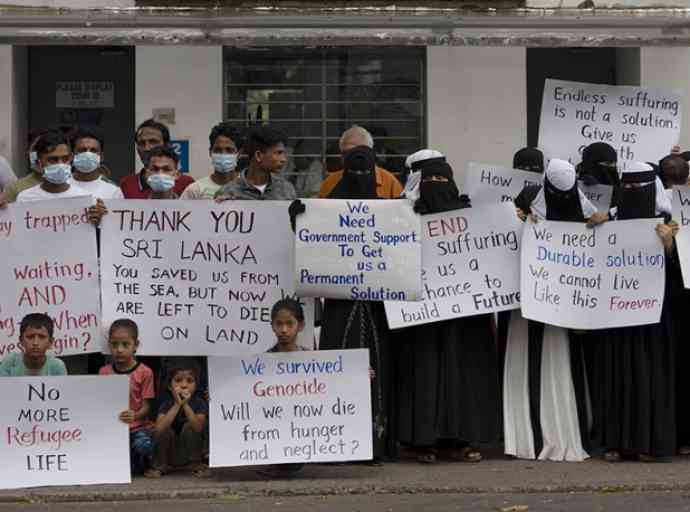 PLEASE DISPLAY
Endless suffuring
is not a solution.
Give us
trapped
Waiting.
AND
When
THANK YOU
SRI LANKA
YOU SAVED US FROM
THE SEA, BUT NOW
ARE LEFT TO DIE
ON LAND
We
Need
Government Support
To Get
us a
Permanent
Solution
END
suffuring
us a
chance to
build a Future
How
We need a
Durable solution
We cannot Live
Like this Forever.
No
MORE
Refugee
LIFE
We survived
Genocide
Will we now die
from hunger
and neglect?